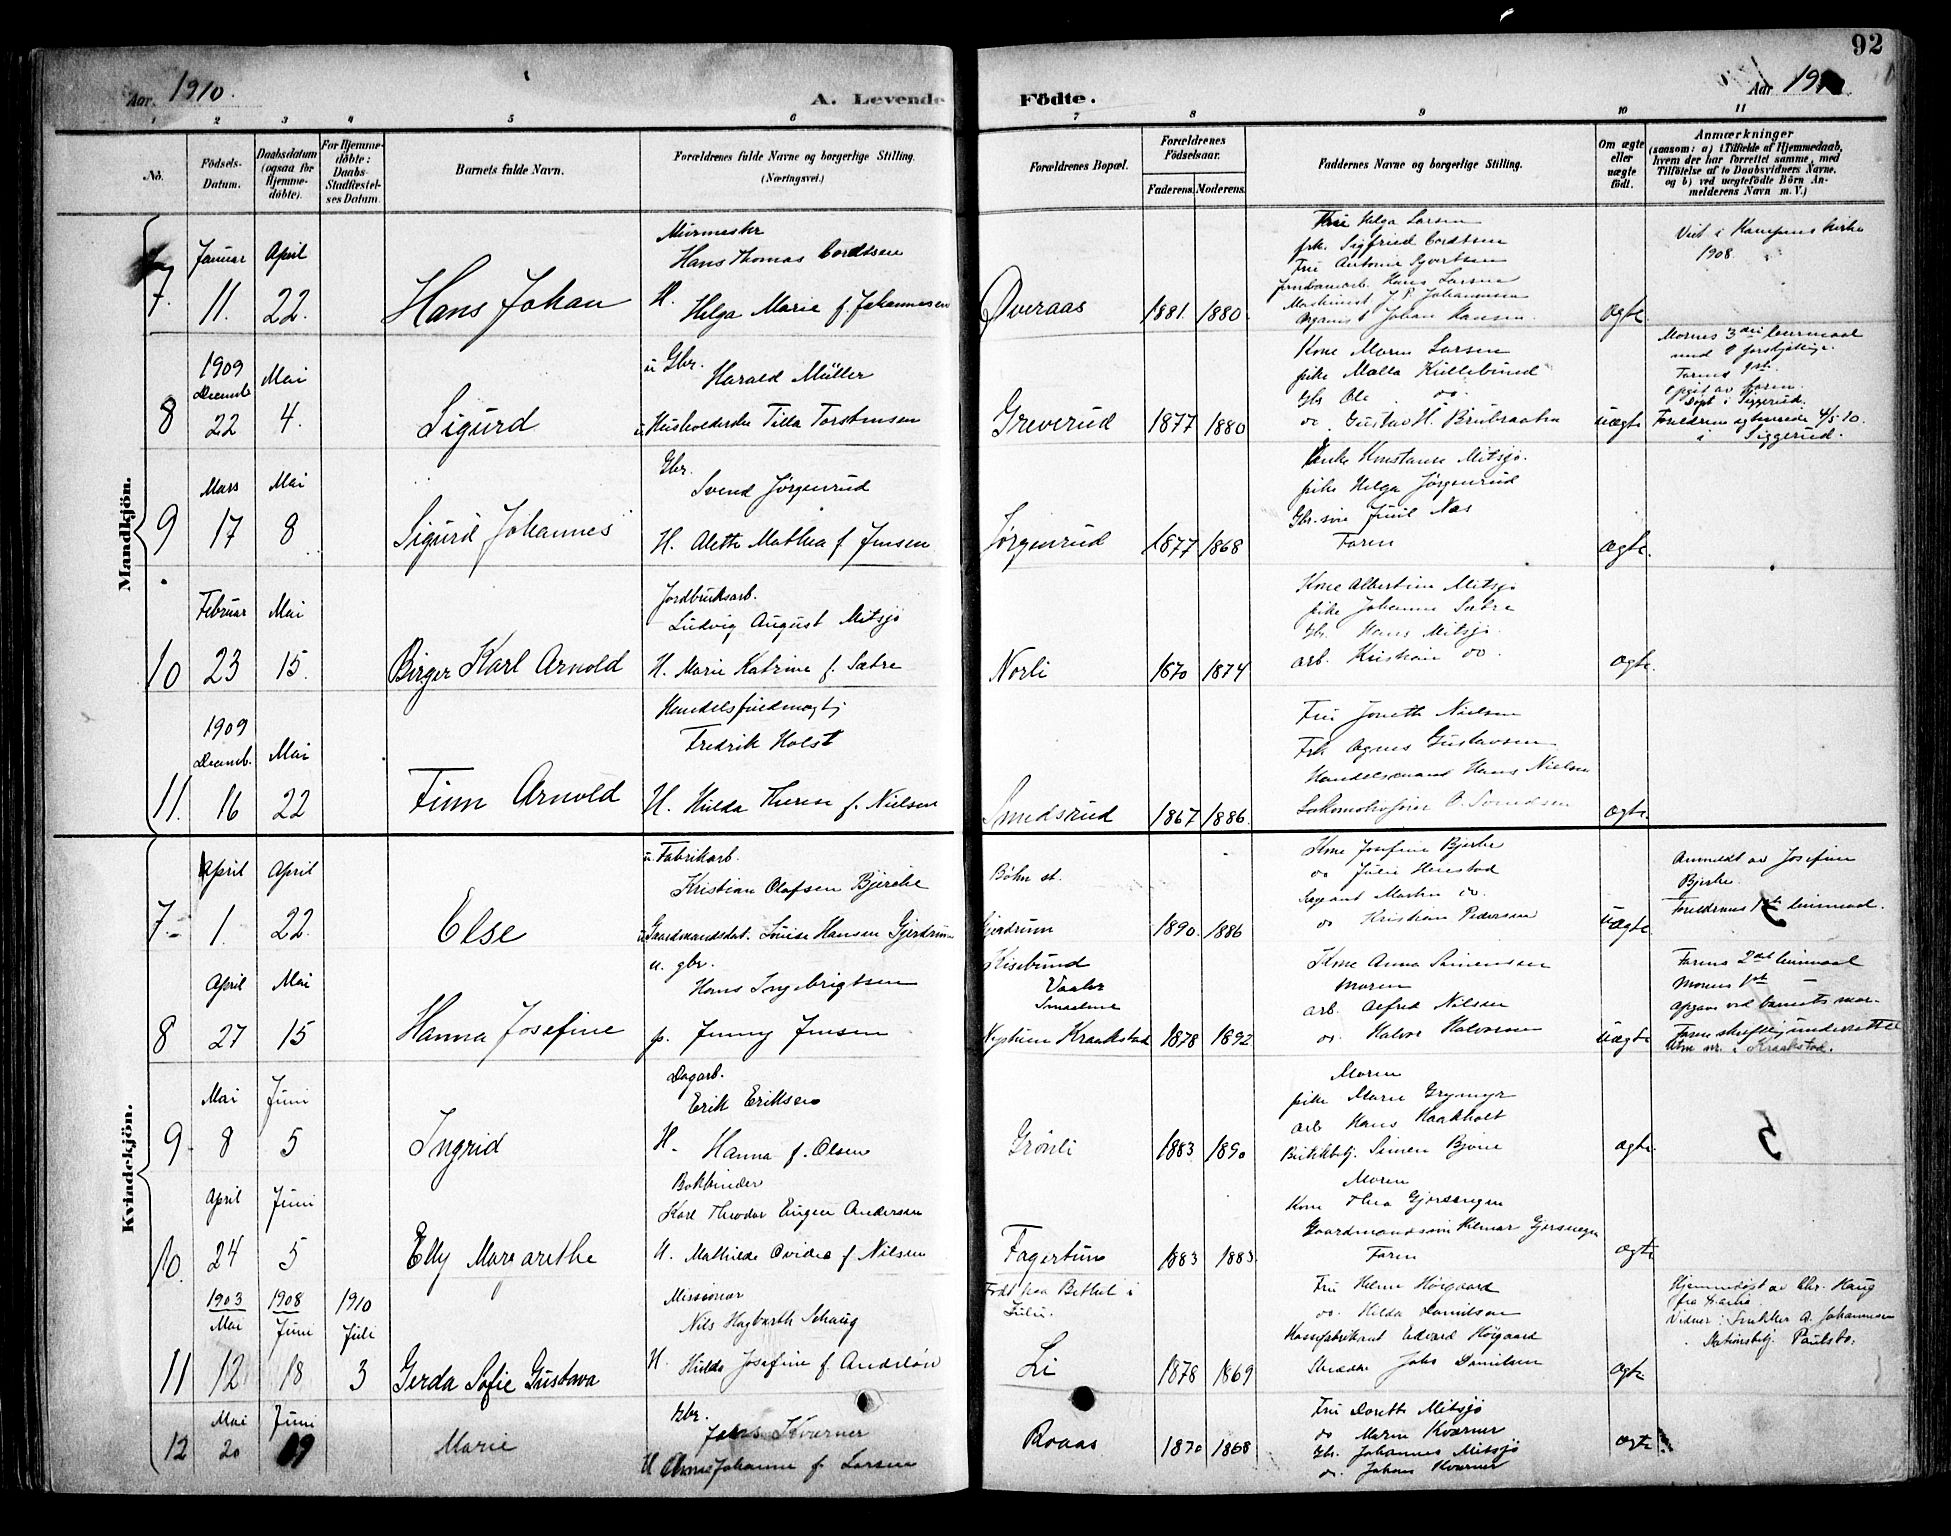 92
Aar 1910.
A. Levende Födte.
Aar 1910
1 2 3 4 5 6 7 8 9 10 11
No.
Födsels-Datum.
Daabsdatum (ogsaa for Hjemmedöbte).
For Hjemmedöbte: Daabs-Stadfæstelses Datum.
Barnets fulde Navn.
Forældrenes fulde Navne og borgerlige Stilling. (Næringsvei.)
Forældrenes Bopæl.
Forældrenes Födselsaar.
Faderens. Moderens.
Faddernes Navne og borgerlige Stilling.
Om ægte eller uægte født.
Anmærkninger
(saasom: a) i Tilfælde af Hjemmedaab, hvem der har forrettet samme, med Tilföielse af to Daabsvidners Navne, og b) ved uægtefödte Börn Anmelderens Navn m. V.)
Mandkjön.
7. Januar 11. April 22.
Hans Johan
Murmester
Hans Thomas Cordtsen
H. Helga Marie f. Johannesen
Overaas
1881. 1880.
Fru Helga Larsen
frk. Sigfried Cordtsen
Hans Larsen
Maskinist J. P. Johannesen
Organist Johan Hansen
ægte.
Viet i Kampens kirke
1908.
8 1909 Decemb. 22 Mai 4.
Sigurd
u. Gbr.
Harald Müller
u. Husholderske Tilla Torstensen
Greverud
1877 1880
Kone Maren Larsen
pike Malla
Gbr. Ole do.
do. Gustav H.
uægte
Mornes 3die leiermaal
med 2 forskjellige.
Farens 1st.
Opgit av faren.
Döpt i Siggerud.
Foreldrene egtevede 4/5-10.
i Siggerud.
9 Mars 17 Mai 8
Sigurd Johannes
Gbr.
Svend Jørgenrud
H. Alette Mathea f. Jensen
Jørgenrud
1877 1868
Enke Konstanse Mitsjø.
pike Helga Jørgenrud
Gbr.søn Juul Næs
Faren
ægte.
10 Februar 23 Mai 15.
Birger Karl Arnold
Jordbruksarb.
Ludvig August Mitsjø
H. Marie Katrine f. Sætre
Norli
1870 1874
Kone Albertine Mitsjø
pike Johanne Sætre
Gbr. Hans Mitsjø.
arb. Kristian do.
ægte.
11. 1909 Decemb. 16 Mai 22
Finn Arnold
Handelsfuldmægtig
Fredrik Holst
H. Hilda Therese f. Nielsen
Smedsrud
1867 1886.
Fru Jonette Nielsen
Frk. Agnes Gustavsen
Handelsmand Hans Nielsen
Lokomotivfører Svendsen
ægte.
Kvindekjön.
7 April 1. April 22.
Else
u. Fabrikarb.
Kristian Olafsen Bjerke
u. Gaardmandsdat. Louise Hansen Gjerdrum
Bøhn st.
Gjerdrum
1890. 1886
Kone Josefine Bjerke
do Julie
Sergeant Martin do.
do Kristian Pedersen
uægte
Anmeldt av Josefine
Bjerke.
Foreldrenes 1ste leiermaal.
8 April 27 Mai 15
Hanna Josefine
u. gbr.
Hans Ingebrigtsen
p. Jenny Jensen
Vaaler
Smaalene
Kraakstad
1878 1892
Kone Anna Simensen
Moren
arb. Alfred Nilsen
do. Halvor Halvorsen
uægte
Farens 2det leiermaal
Morens 1st
opgav ved barnets mor.
Faren skriftlig underrettet
i Kraakstad.
9 Mai 8 Juni 5
Ingrid
Dagarb.
Erik Eriksen
H. Hanna f. Olsen
Grönli
1883 1890
Moren
pike Marie Grymyr
arb Hans Haakholt
Simen
ægte.
5
10. April 24 Juni 5
Elly Margarethe
Bokbinder
Karl Theodor Eugen Andersen
H. Mathilde Ovidea f. Nilsen
Fagertun
1883 1883.
Moren
Kone Thea Gjersengen
Gaardmandssøn Hilmar Gjersengen
Faren
ægte
11 1903 Mai 12 1908 Juni 18 1910 Juli 3
Gerda Sofie Gustava
Missionær
Nils Hagbarth Schaug
H. Hilda Josefine f. Andelön
Født paa Bethel i
Li
1878 1869
Fru Helene Høigaard
do. Hilda Danielsen
Kassefabrikant Edvard Høigaard
Skrædder Johs Danielsen
ægte
Hjemmedøpt av Chr. Haug
Vidner: Snekker A. Johannesen
Stationsbetj. Paulsbo.
12 Mai 20 Juni 19
Marie
Gbr.
Johs Kværner
H. Anne Johanne f. Larsen
Roaas
1870 1868
Fru Dorette Mitsjø
do Maren Kværner
Gbr. Johannes Mitsjø
do. Johan Kværner
ægte.